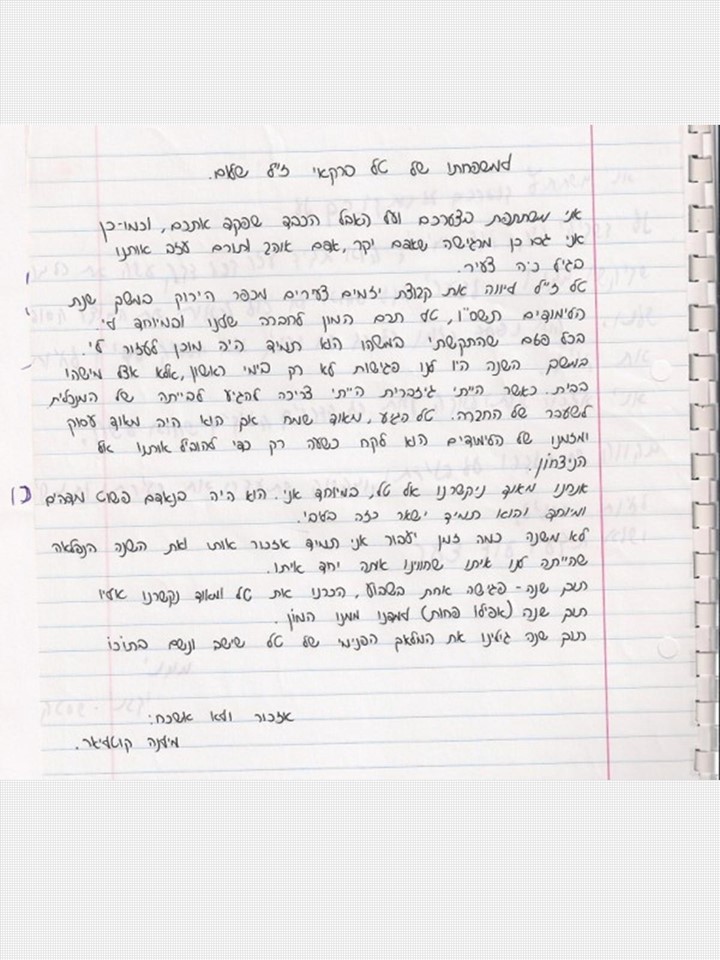 למשפחתו של טל ברקאי ז"ל שלום.
אני משתתפת בצערכם ועל האבל הכבד שפקד אתכם, וכמו-כן
אני גם כן מרגישה שאדם יקר, אדם אוהב ותורם עזב אותנו
בגיל כ"ה צעיר.
טל ז"ל ליווה את קבוצת יזמים צעירים מכפר הירוק במשך שנת
הלימודים תשס"ו, טל תרם המון לחברה שלנו ובמיוחד לי
בכל פעם שהתקשתי במשהו הוא תמיד היה מוכן לעזור לי
במשך השנה היו לנו פגישות לא רק בימי ראשון, אלא אצל מישהו
בבית. כאשר הייתי גיזברית הייתי צריכה להגיע לביתה של המנכלית
לשעבר של החברה. טל הגע, מאוד שמח אם הוא היה מאוד עסוק
ומזמנו של הלימודים הוא לקח כשעה רק כדי להוביל אותנו אל
הניצחון.
אנחנו מאוד ניקשרנו אל טל, במיוחד אני. הוא היה בנאדם פשוט מדהים
ומיוחד והוא תמיד ישאר כזה בלבי.
לא משנה כמה זמן יעבור אני תמיד אזכור אותו ואת השנה הנפלאה
שהייתה לנו איתו שחווינו אתה יחד איתו.
תוך שנה - פגישה אחת בשבוע, הכרנו את טל ומאוד נקשרנו אליו
תוך שנה (אפילו פחות) למדנו ממנו המון.
תוך שנה גילינו את המלאך הפנימי של טל שישב ונשם בתוכו
אזכור ולא אשכח: